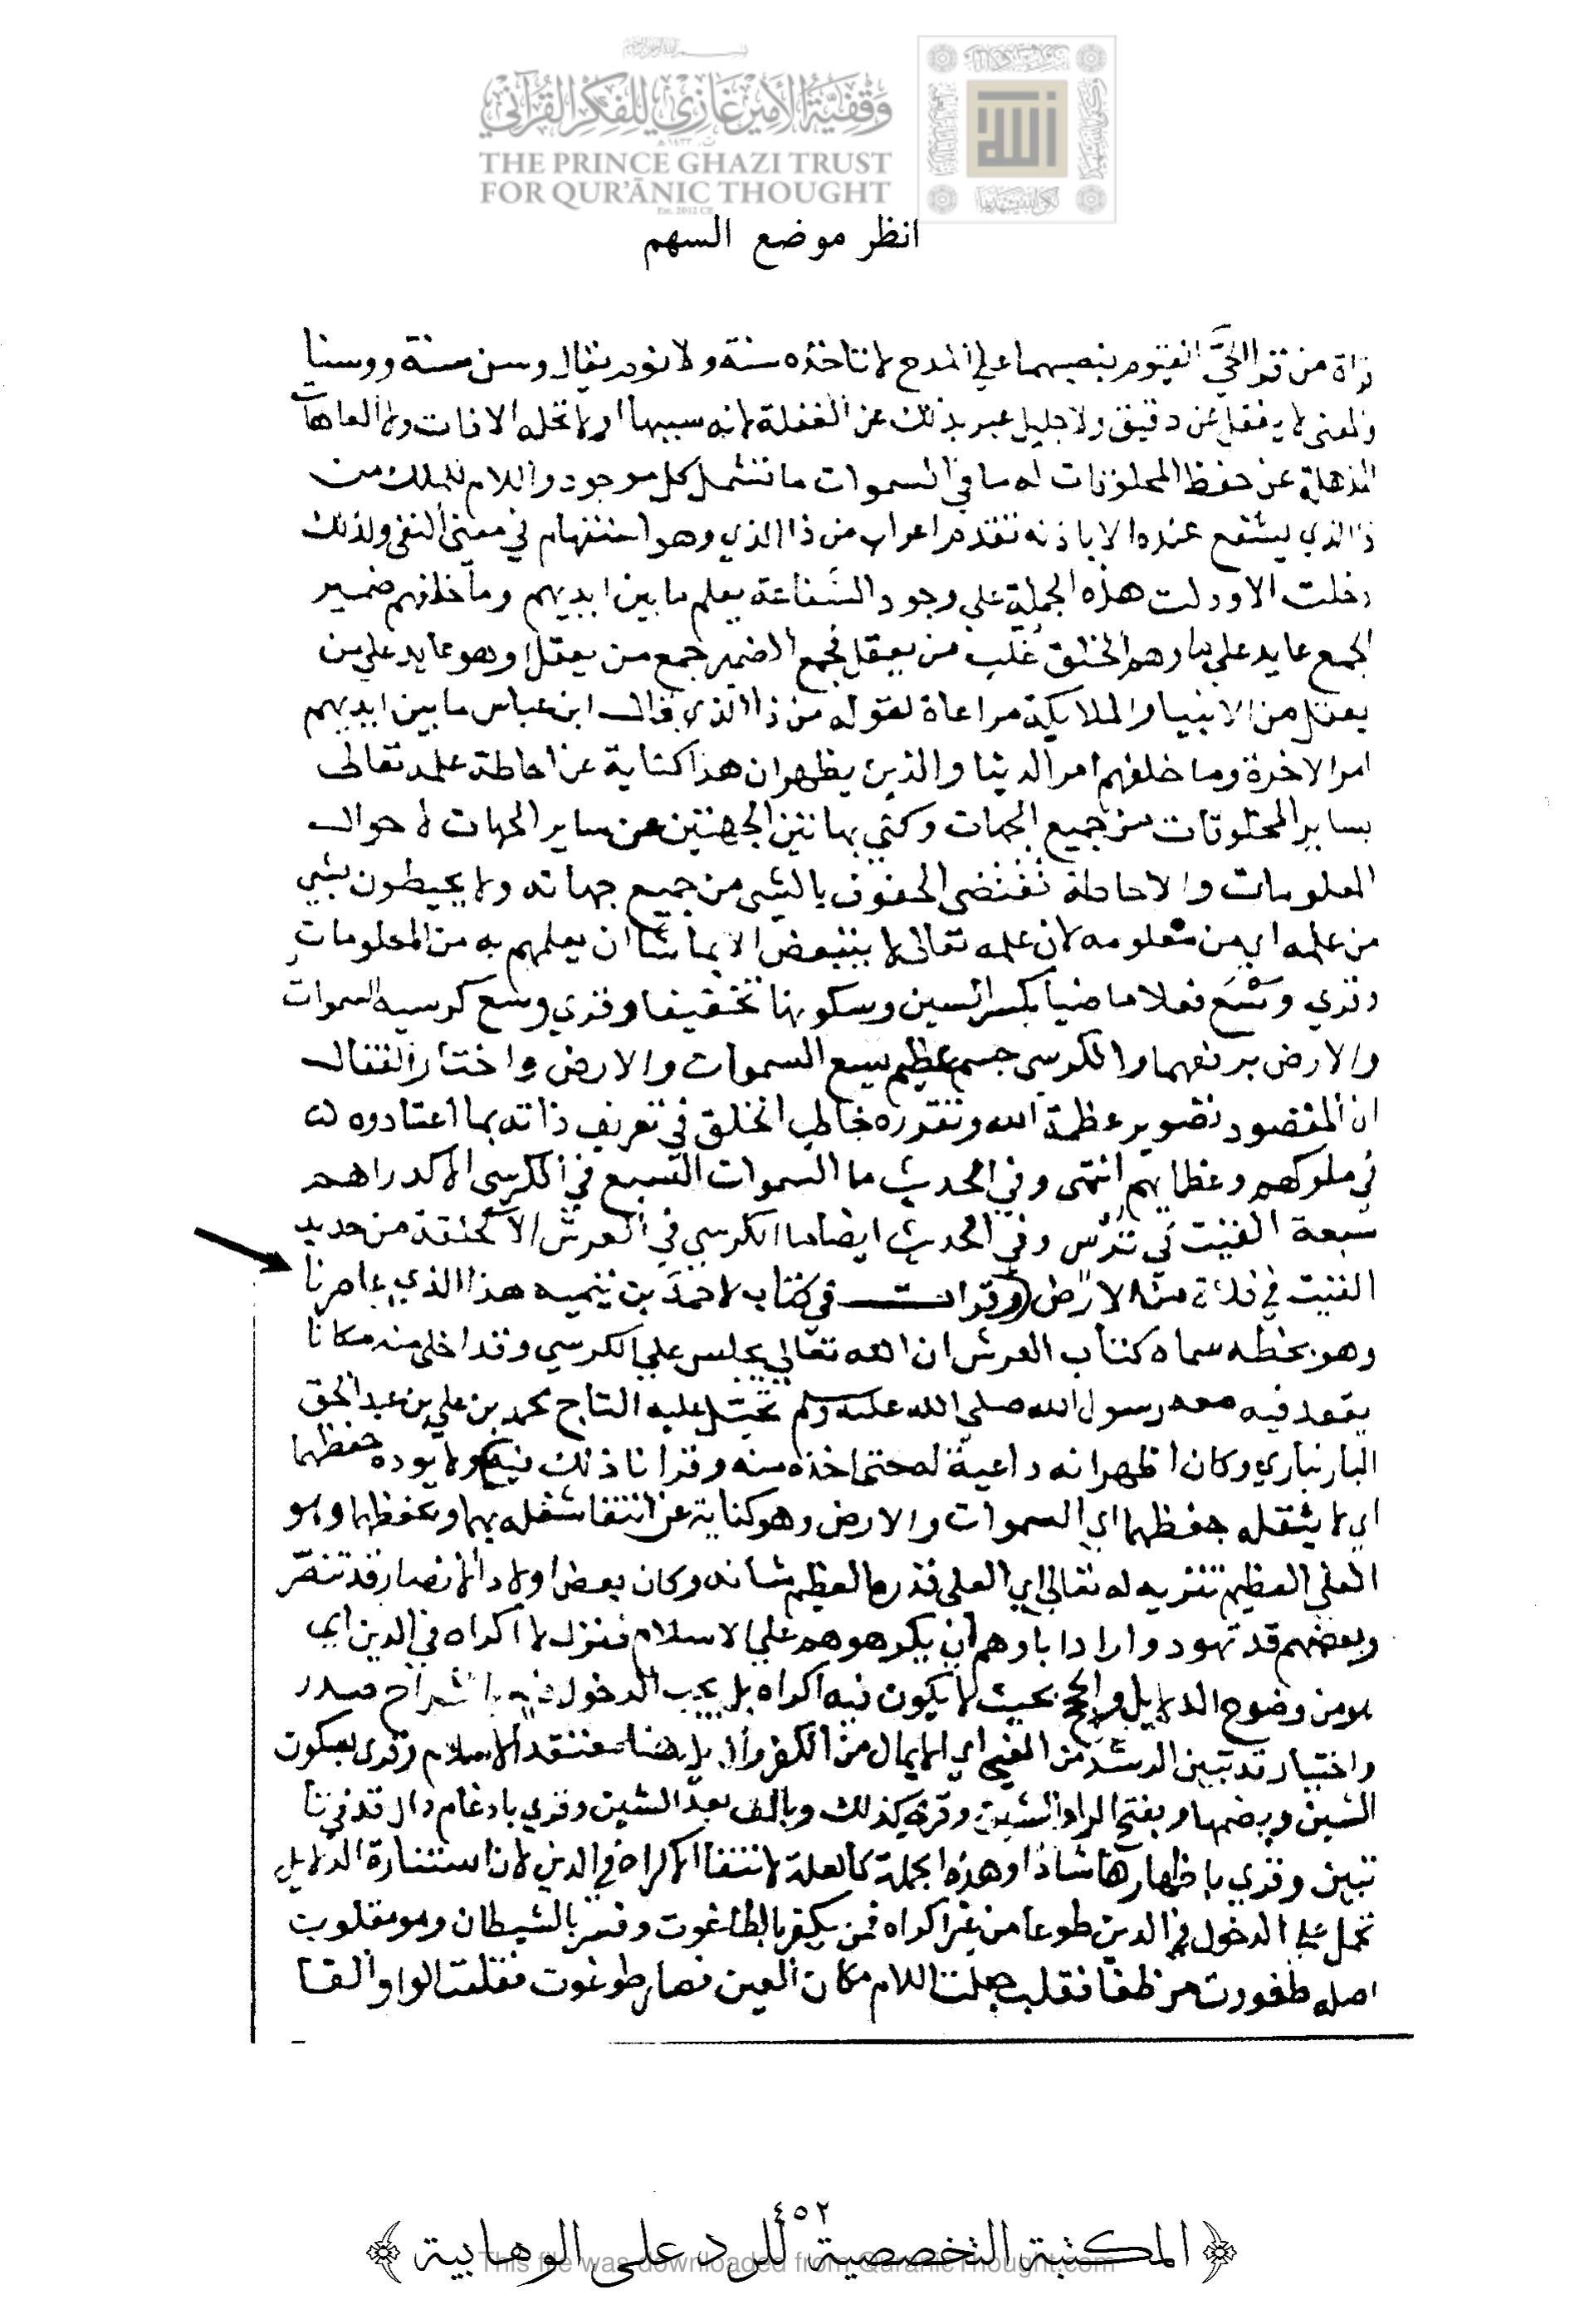 وقفية الأمير غازي للفكر القرآني
THE PRINCE GHAZI TRUST
FOR QUR'ĀNIC THOUGHT
Est. 2012 CE
انظر موضع السهم
من قرا الحي القيوم بنصبهما على المدح لا تاخذه سنة ولا نوم يقال وسن سنة ووسنا
والمعنى لا يغفل عن دقيق ولا جليل عبر بذلك عن الغفلة لانه سببها او لا تحله الافات ولا العاهات
المذهلة عن حفظ المخلوقات له ما في السموات ما تشمل كل موجود واللام للملك من
ذا الذي يشفع عنده الا باذنه تقدم اعراب من ذا الذي وهو استفهام في معنى النفي ولذلك
دخلت الا ودلت هذه الجملة على وجود الشفاعة يعلم ما بين ايديهم وما خلفهم ضمير
الجمع عايد على ما وهم الخلق غلب من يعقل فجمع الضمير جمع من يعقل او هو عايد على من
يعقل من الانبيا والملايكة مراعاة لقوله من ذا الذي قال ابن عباس ما بين ايديهم
امر الاخرة وما خلفهم امر الدنيا والذي يظهر ان هذا كناية عن احاطة علمه تعالى
بساير المخلوقات من جميع الجهات وكنى بهاتين الجهتين عن ساير الجهات لاحوال
المعلومات والاحاطة تقتضي الحفوف بالشي من جميع جهاته ولا يحيطون بشي
من علمه اي من معلومه لان علمه تعالى لا يتبعض الا بما شا ان يعلمهم به من المعلومات
وقري وسع فعلا ماضيا بكسر السين وسكونها تخفيفا وقري وسع كرسيه السموات
والارض برفعهما والكرسي جسم عظيم يسع السموات والارض واختار القفال
ان المقصود تصوير عظمة الله وتقديره خاطب الخلق في تعريف ذاته بما اعتادوه
في ملوكهم وعظمايهم انتهى وفي الحديث ما السموات السبع في الكرسي الا كدراهم
سبعة القيت في ترس وفي الحديث ايضا ما الكرسي في العرش الا كحلقة من حديد
القيت في فلاة من الارض وقرات في كتاب لاحمد بن تيميه هذا الذي عاصرنا
وهو بخطه سماه كتاب العرش ان الله تعالى يجلس على الكرسي وقد اخلى منه مكانا
يقعد فيه معه رسول الله صلى الله عليه وسلم تحيل عليه التاج محمد بن علي بن عبد الحق
البارنباري وكان اظهر انه داعية له حتى اخذه منه وقرانا ذلك فيه ولا يوده حفظهما
اي لا يثقله حفظهما اي السموات والارض وهو كناية عن انتفا شغله بهما وبحفظهما وهو
العلي العظيم تنزيه له تعالى اي العلي قدره العظيم شانه وكان بعض اولاد الانصار قد تنصر
وبعضهم قد تهود وارادا باوهم ان يكرهوهم على الاسلام فنزل لا اكراه في الدين اي
من وضوح الدلايل والحجج بحيث لا يكون فيه اكراه بل يجب الدخول فيه بانشراح صدر
واختيار قد تبين الرشد من الغي اي الايمال من الكفر وقري بسكون
الشين وبضمها وبفتح الرا والشين وقري كذلك وبالف بعد الشين وقري بادغام دال قد في تا
تبين وقري باظهارها شاذا وهذه الجملة كالعلة لانتفا الاكراه في الدين لان استنارة الدلايل
تحمل على الدخول في الدين طوعا من غير اكراه فمن يكفر بالطاغوت وفسر بالشيطان وهو مقلوب
اصله طغووت من طغا فقلب جعلت اللام مكان العين فصار طوغوت فقلبت الواو الفا
٤٥٢
المكتبة التخصصية للرد على الوهابية
This file was downloaded from QuranicThought.com